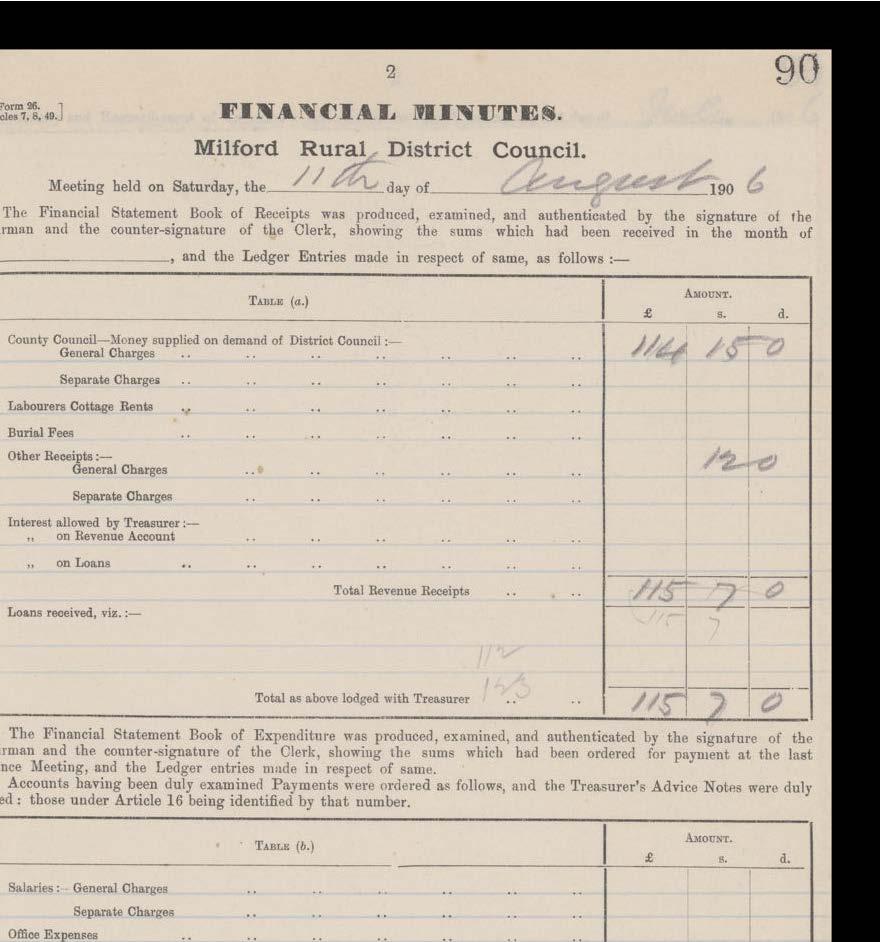 2
90
Form 26.
cles 7, 8, 49.]
FINANCIAL MINUTES.
Milford Rural District Council.
Meeting held on Saturday, the 11th day of August 1906
The Financial Statement Book of Receipts was produced, examined, and authenticated by the signature of the
rman and the counter-signature of the Clerk, showing the sums which had been received in the month of
, and the Ledger Entries made in respect of same, as follows :—
TABLE (a.) AMOUNT.
£ s. d.
County Council—Money supplied on demand of District Council :—
General Charges .. .. .. .. .. .. .. 114 15 0
Separate Charges .. .. .. .. .. .. ..
Labourers Cottage Rents .. .. .. .. .. .. ..
Burial Fees .. .. .. .. .. .. ..
Other Receipts :—
General Charges .. .. .. .. .. .. 12 0
Separate Charges .. .. .. .. .. ..
Interest allowed by Treasurer :—
„ on Revenue Account .. .. .. .. .. ..
„ on Loans .. .. .. .. .. .. ..
Total Revenue Receipts .. .. 115 7 0
Loans received, viz. :— 115 7
112
123
Total as above lodged with Treasurer .. .. 115 7 0
The Financial Statement Book of Expenditure was produced, examined, and authenticated by the signature of the
rman and the counter-signature of the Clerk, showing the sums which had been ordered for payment at the last
nce Meeting, and the Ledger entries made in respect of same.
Accounts having been duly examined Payments were ordered as follows, and the Treasurer's Advice Notes were duly
ed : those under Article 16 being identified by that number.
TABLE (b.) AMOUNT.
£ s. d.
Salaries :— General Charges .. .. .. .. .. ..
Separate Charges .. .. .. .. .. ..
Office Expenses .. .. .. .. .. .. ..